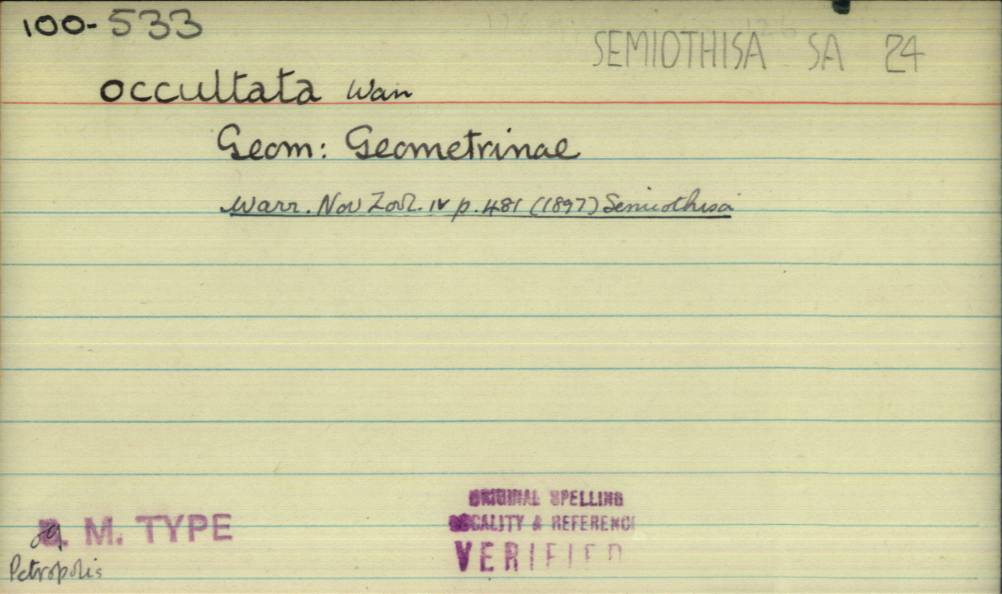 100-533
SEMIOTHISA SA 24
occultata Warr
Geom: Geometrinae
Warr. Nov Zool. IV p. 481 (1897) Semiothisa
ORIGINAL SPELLING
LOCALITY & REFERENCE
VERIFIED
M. TYPE
Petropolis